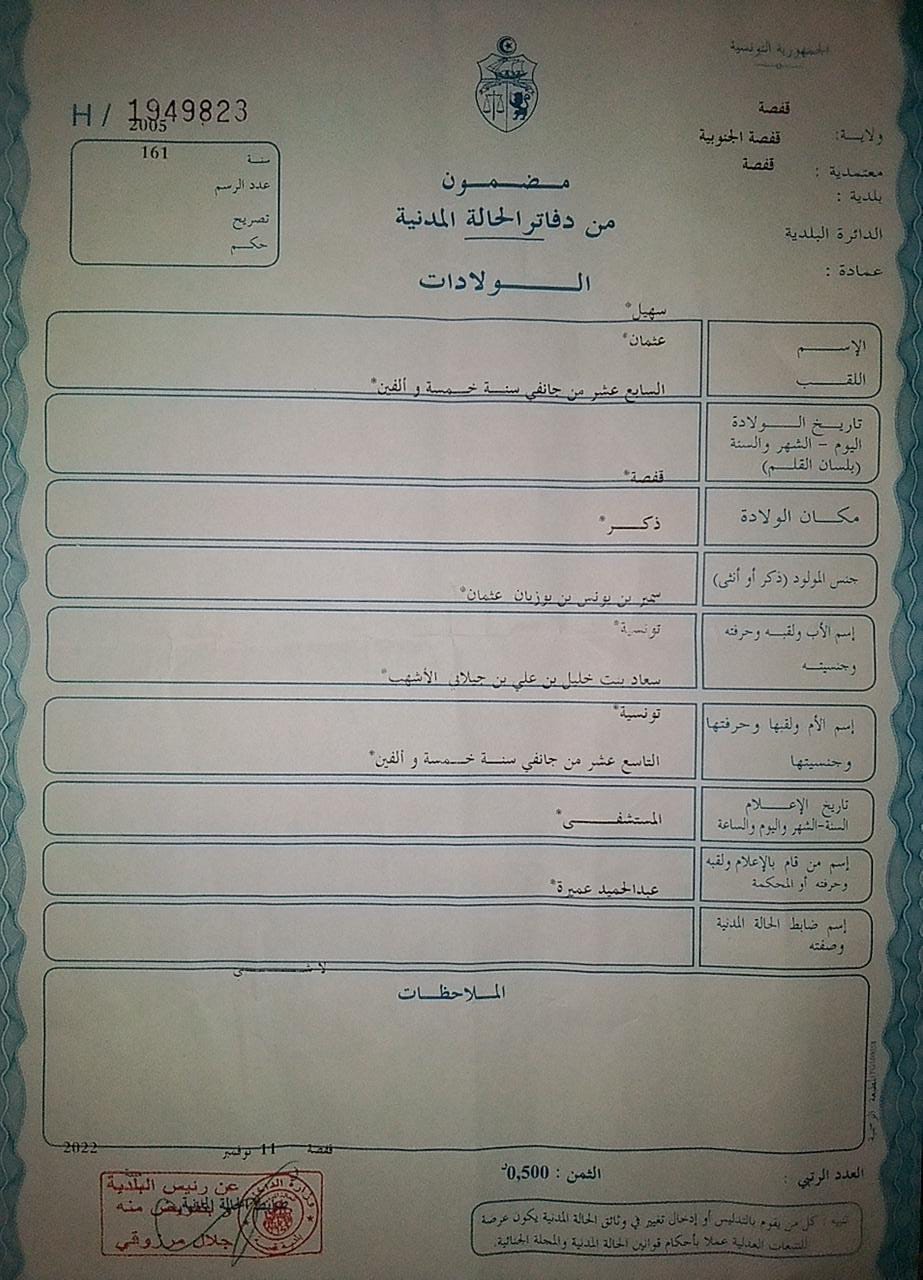 الجمهورية التونسية
H / 1949823
2005
قفصة
ولاية:
قفصة الجنوبية
معتمدية :
قفصة
بلدية :
الدائرة البلدية
عمادة :
161
سنة
عدد الرسم
تصريح
حكم
مضمون
من دفاتر الحالة المدنية
الولادات
سهيل*
الإسم
عثمان*
اللقب
السابع عشر من جانفي سنة خمسة و ألفين*
تاريخ الولادة
اليوم - الشهر والسنة
(بلسان القلم)
قفصة*
مكان الولادة
ذكر*
جنس المولود (ذكر أو أنثى)
سمير بن يونس بن بوزيان عثمان*
إسم الأب ولقبه وحرفته
تونسية*
وجنسيته
سعاد بنت خليل بن علي بن جيلاني الأشهب*
إسم الأم ولقبها وحرفتها
تونسية*
وجنسيتها
التاسع عشر من جانفي سنة خمسة و ألفين*
تاريخ الإعلام
السنة-الشهر واليوم والساعة
المستشفى*
إسم من قام بالإعلام ولقبه
وحرفته أو المحكمة
عبدالحميد عميرة*
إسم ضابط الحالة المدنية
وصفته
لا شى
الملاحظات
قفصة 11 نوفمبر 2022
العدد الرتبي :
الثمن : 0,500د
تنبيه : كل من يقوم بالتدليس أو إدخال تغيير في وثائق الحالة المدنية يكون عرضة
للتتبعات العدلية عملا بأحكام قوانين الحالة المدنية والمجلة الجنائية.
عن رئيس البلدية
ضابط الحالة المدنية
و بتفويض منه
جلال مرزوقي